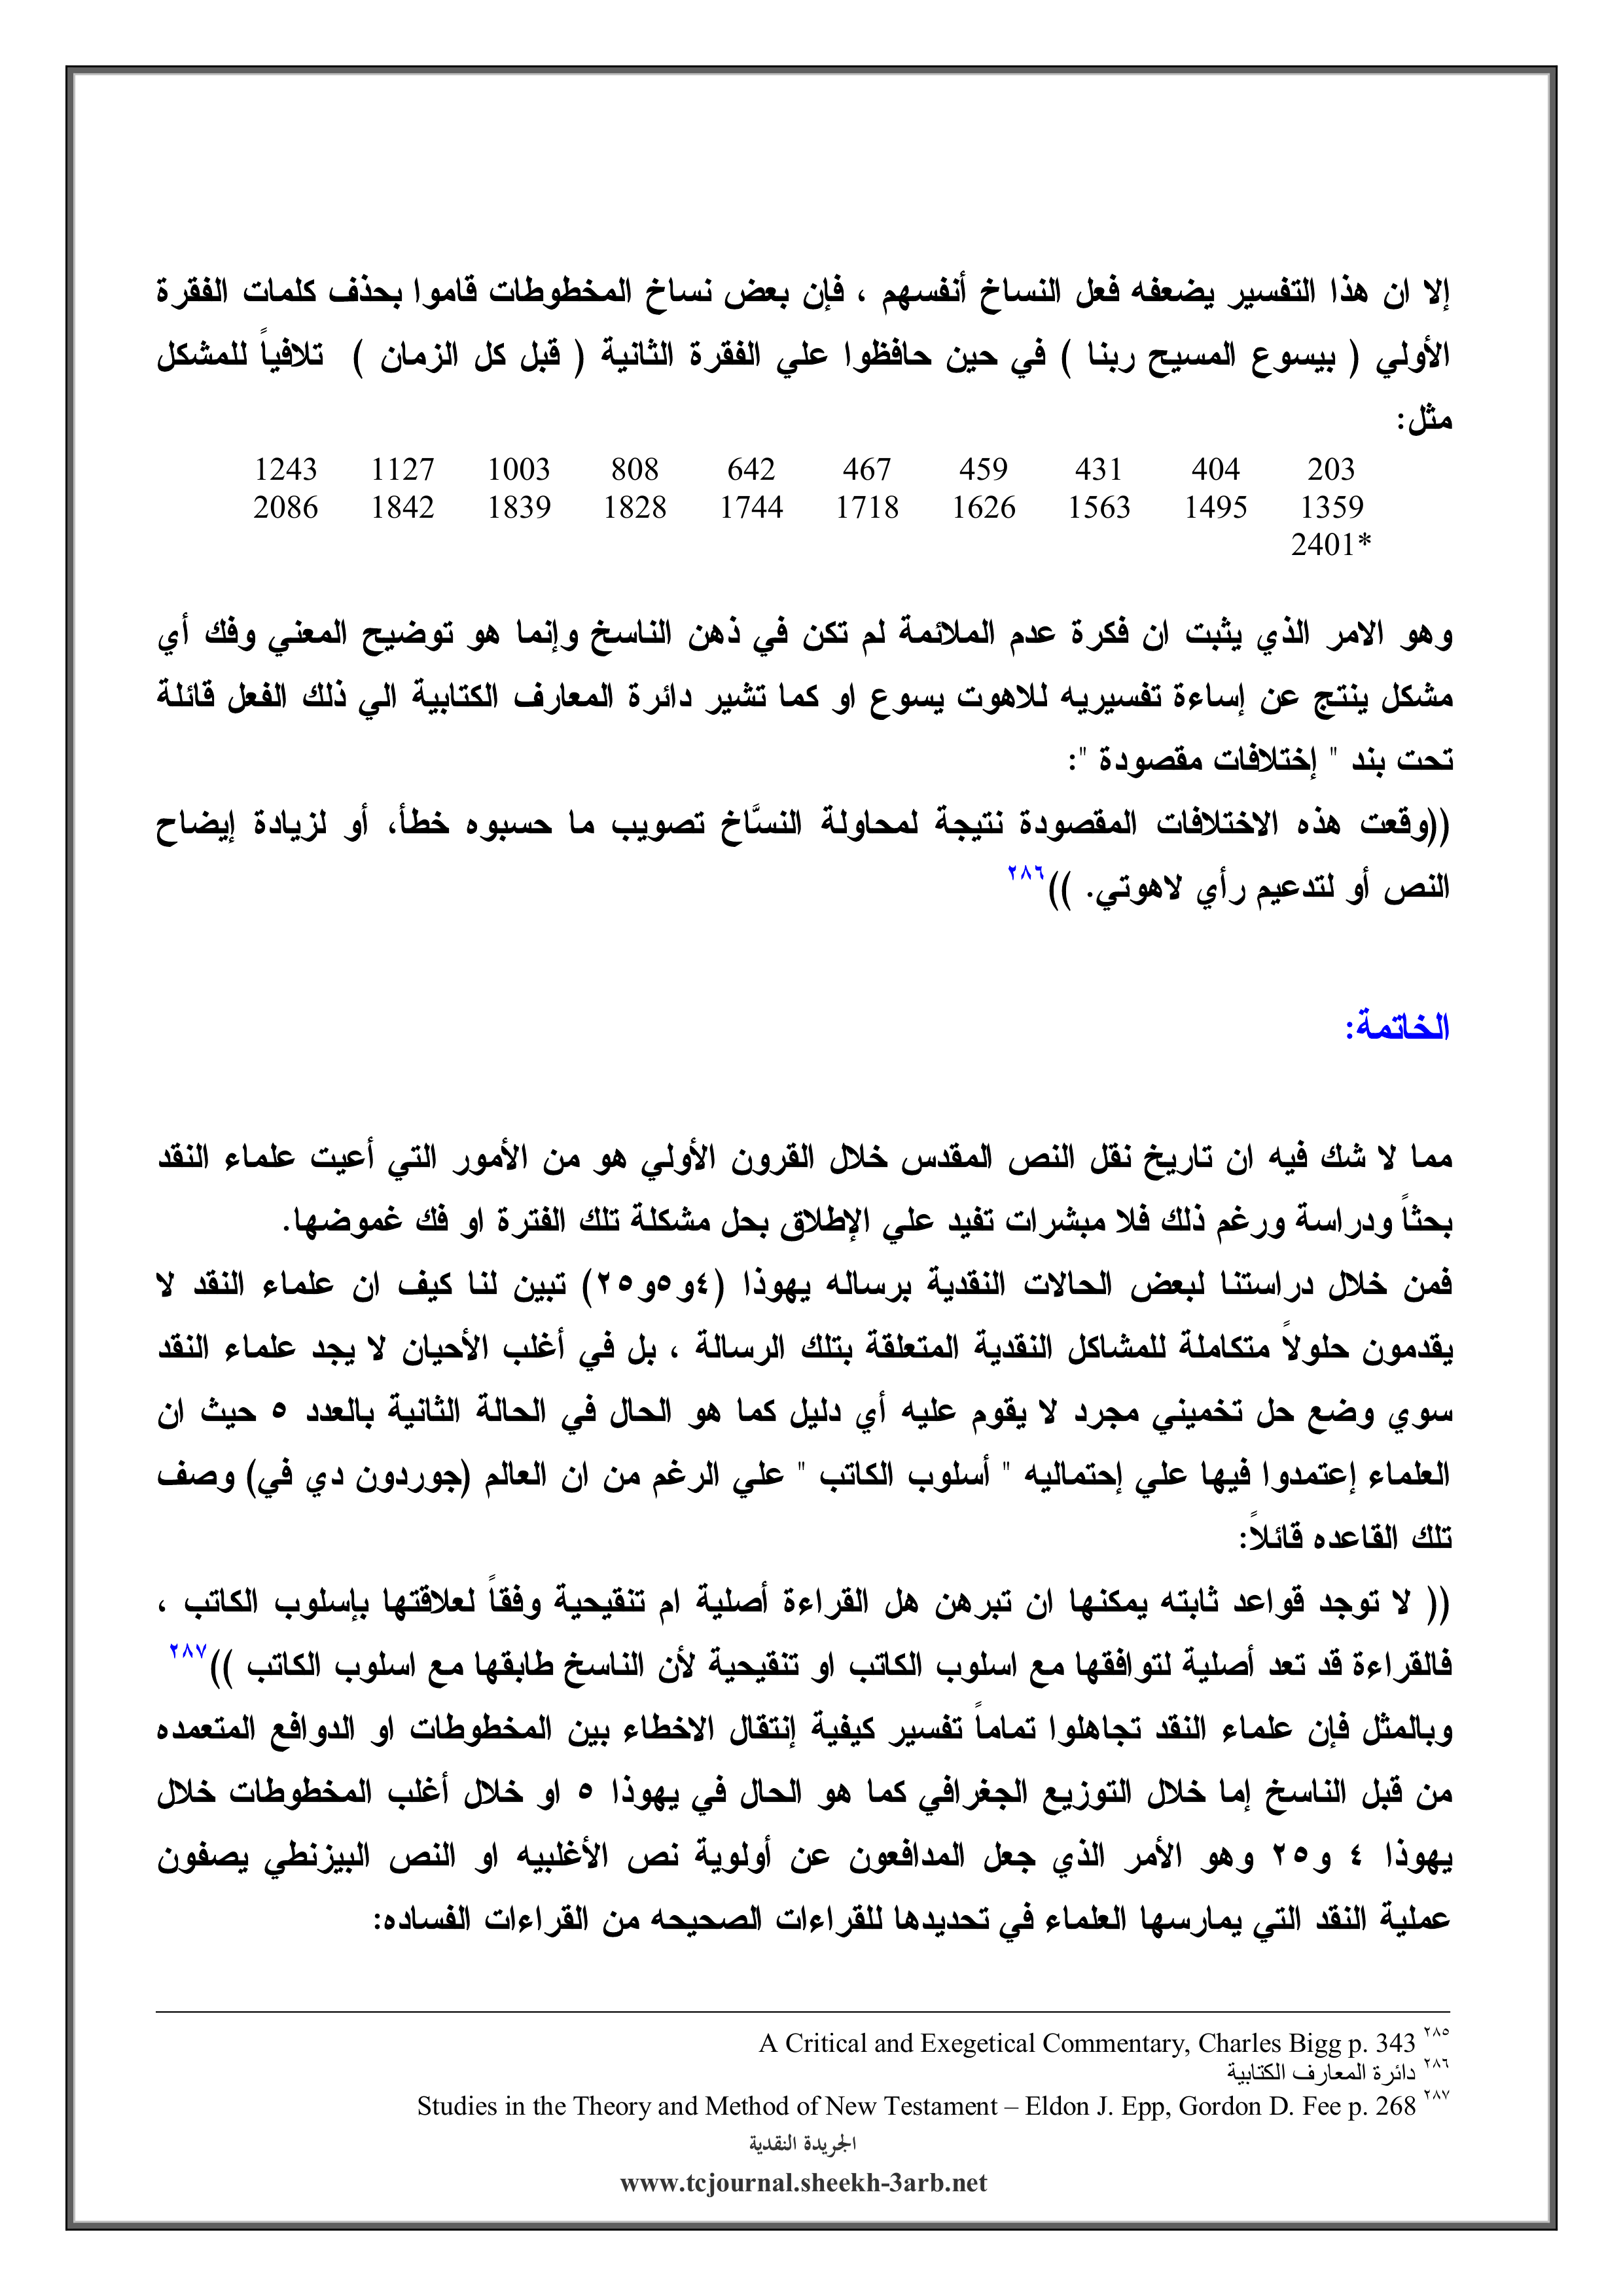 إلا ان هذا التفسير يضعفه فعل النساخ أنفسهم ، فإن بعض نساخ المخطوطات قاموا بحذف كلمات الفقرة
الأولي ( بيسوع المسيح ربنا ) في حين حافظوا علي الفقرة الثانية ( قبل كل الزمان ) تلافياً للمشكل
مثل:
203 404 431 459 467 642 808 1003 1127 1243
1359 1495 1563 1626 1718 1744 1828 1839 1842 2086
2401*
وهو الامر الذي يثبت ان فكرة عدم الملائمة لم تكن في ذهن الناسخ وإنما هو توضيح المعني وفك أي
مشكل ينتج عن إساءة تفسيريه للاهوت يسوع او كما تشير دائرة المعارف الكتابية الي ذلك الفعل قائلة
تحت بند " إختلافات مقصودة ":
((وقعت هذه الاختلافات المقصودة نتيجة لمحاولة النسَّاخ تصويب ما حسبوه خطأ، أو لزيادة إيضاح
النص أو لتدعيم رأي لاهوتي. ))٢٨٦
الخاتمة:
مما لا شك فيه ان تاريخ نقل النص المقدس خلال القرون الأولي هو من الأمور التي أعيت علماء النقد
بحثاً ودراسة ورغم ذلك فلا مبشرات تفيد علي الإطلاق بحل مشكلة تلك الفترة او فك غموضها.
فمن خلال دراستنا لبعض الحالات النقدية برساله يهوذا (٤و٥و٢٥) تبين لنا كيف ان علماء النقد لا
يقدمون حلولاً متكاملة للمشاكل النقدية المتعلقة بتلك الرسالة ، بل في أغلب الأحيان لا يجد علماء النقد
سوي وضع حل تخميني مجرد لا يقوم عليه أي دليل كما هو الحال في الحالة الثانية بالعدد ٥ حيث ان
العلماء إعتمدوا فيها علي إحتماليه " أسلوب الكاتب " علي الرغم من ان العالم (جوردون دي في) وصف
تلك القاعده قائلاً:
(( لا توجد قواعد ثابته يمكنها ان تبرهن هل القراءة أصلية ام تنقيحية وفقاً لعلاقتها بإسلوب الكاتب ،
فالقراءة قد تعد أصلية لتوافقها مع اسلوب الكاتب او تنقيحية لأن الناسخ طابقها مع اسلوب الكاتب ))٢٨٧
وبالمثل فإن علماء النقد تجاهلوا تماماً تفسير كيفية إنتقال الاخطاء بين المخطوطات او الدوافع المتعمده
من قبل الناسخ إما خلال التوزيع الجغرافي كما هو الحال في يهوذا ٥ او خلال أغلب المخطوطات خلال
يهوذا ٤ و٢٥ وهو الأمر الذي جعل المدافعون عن أولوية نص الأغلبيه او النص البيزنطي يصفون
عملية النقد التي يمارسها العلماء في تحديدها للقراءات الصحيحه من القراءات الفساده:
٢٨٥ A Critical and Exegetical Commentary, Charles Bigg p. 343
٢٨٦ دائرة المعارف الكتابية
٢٨٧ Studies in the Theory and Method of New Testament – Eldon J. Epp, Gordon D. Fee p. 268
الجريدة النقدية
www.tcjournal.sheekh-3arb.net